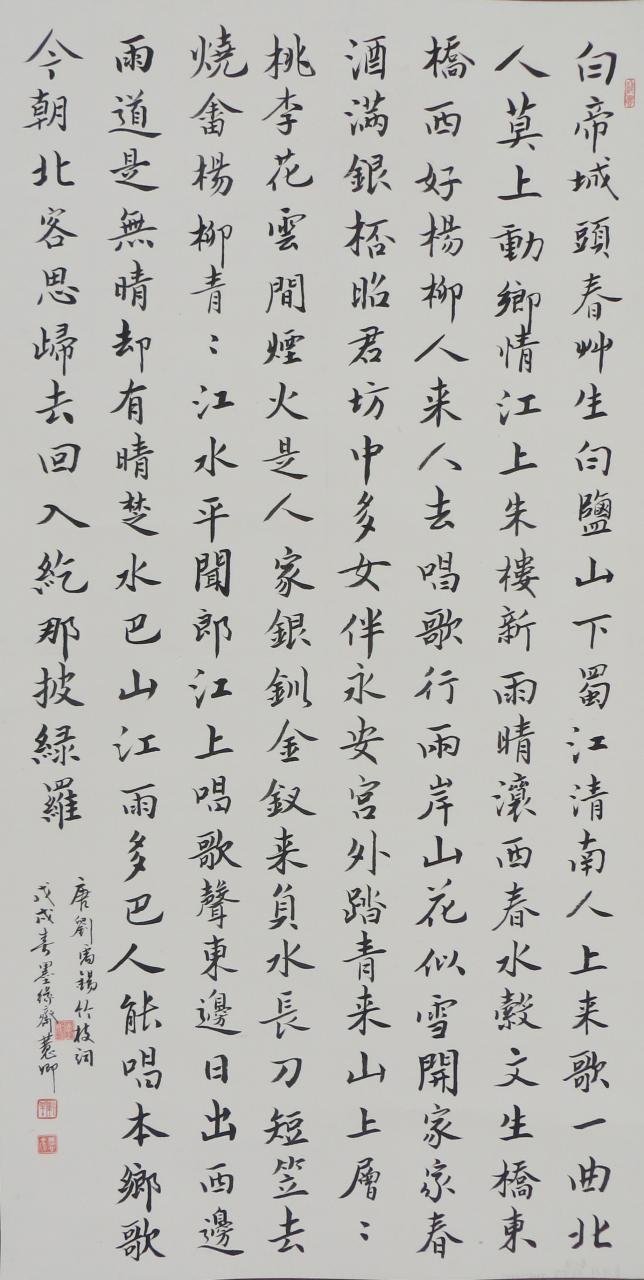 白帝城頭春艸生白鹽山下蜀江清南人上来歌一曲北
人莫上動鄉情江上朱樓新雨晴瀼西春水縠文生橋東
橋西好楊柳人来人去唱歌行兩岸山花似雪開家家春
酒滿銀桮昭君坊中多女伴永安宮外踏青来山上層〻
桃李花雲間煙火是人家銀釧金釵来負水長刀短笠去
燒畬楊柳青〻江水平聞郎江上唱歌聲東邊日出西邊
雨道是無晴却有晴楚水巴山江雨多巴人能唱本鄉歌
今朝北客思歸去回入紇那披綠羅
唐劉禹錫竹枝詞
戊戌春墨緣齋慧卿